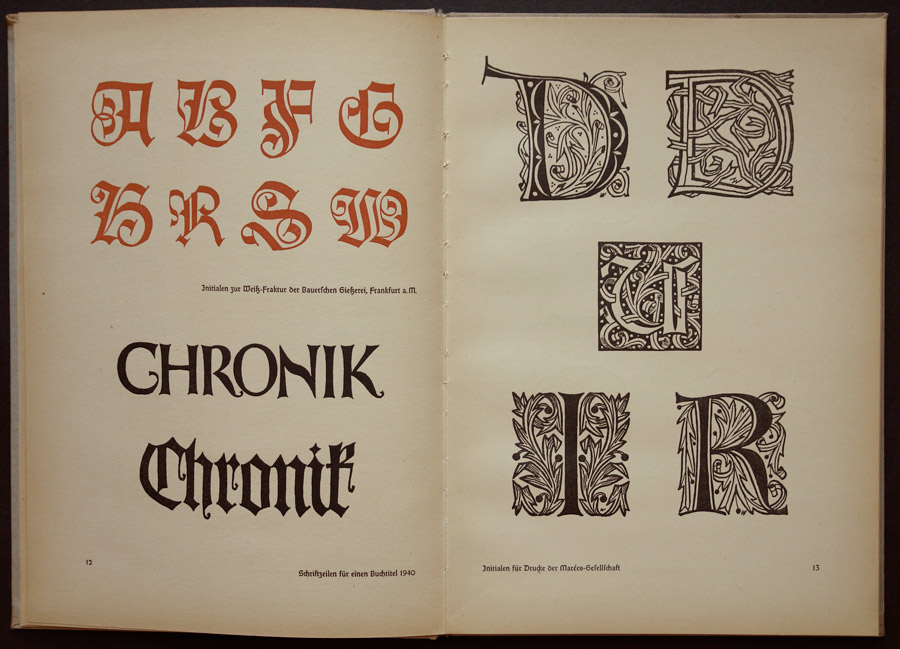 A B F G
H R S W
Initialen zur Weiß-Fraktur der Bauerſchen Gießerei, Frankfurt a. M.
CHRONIK
Chronik
12
Schriftzeilen für einen Buchtitel 1940
D D
U
I R
Initialen für Drucke der Marées-Geſellſchaft
13